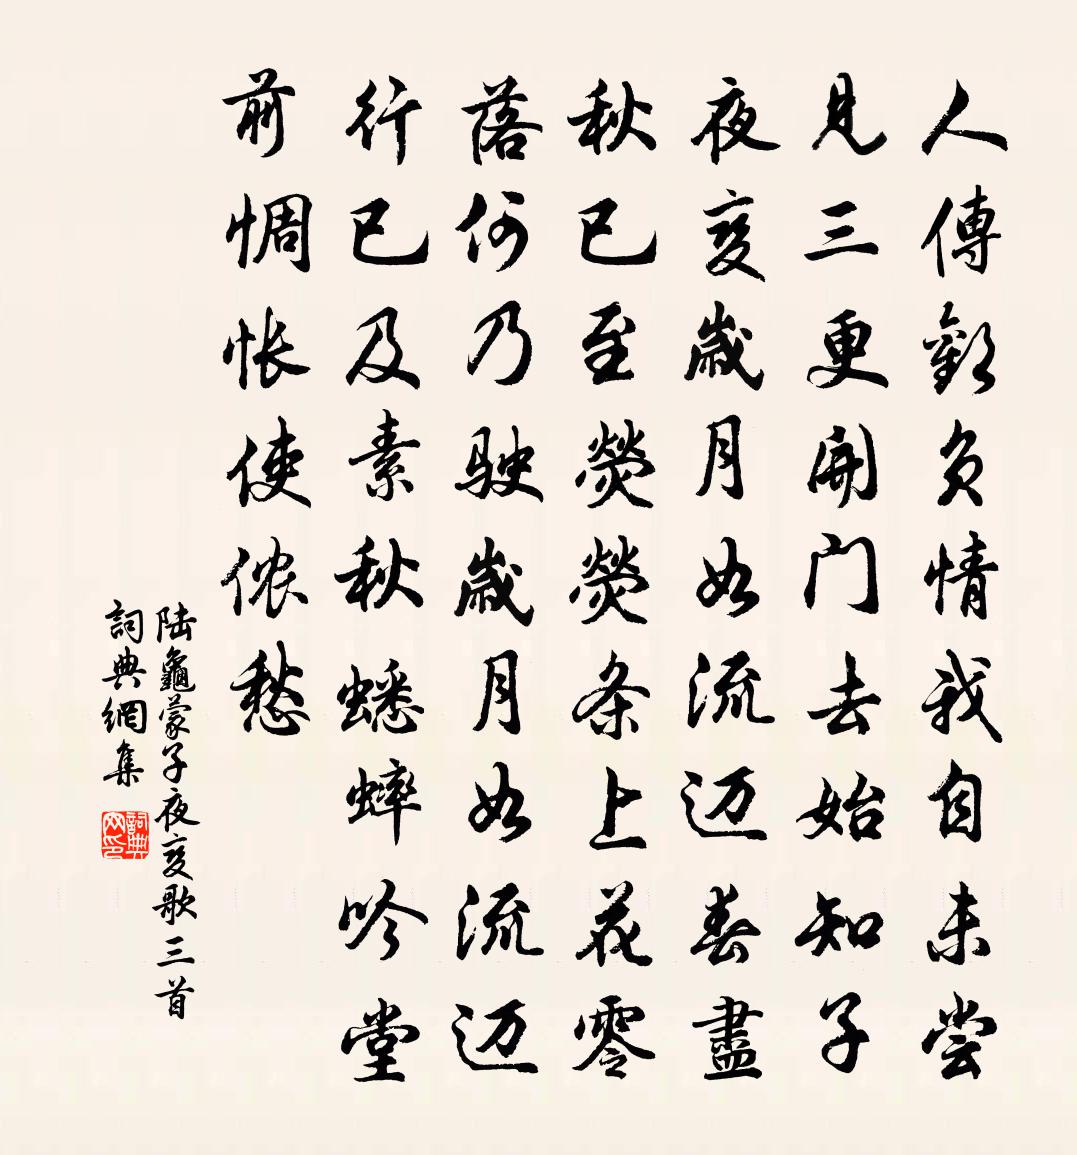 人傳歡負情我自未嘗
見三更開门去始知子
夜变歲月如流迈春盡
秋已至熒熒条上花零
落何乃駛歲月如流迈
行已及素秋蟋蟀吟堂
前惆怅使侬愁
陆龜蒙子夜变歌三首
詞典網集
詞典网印